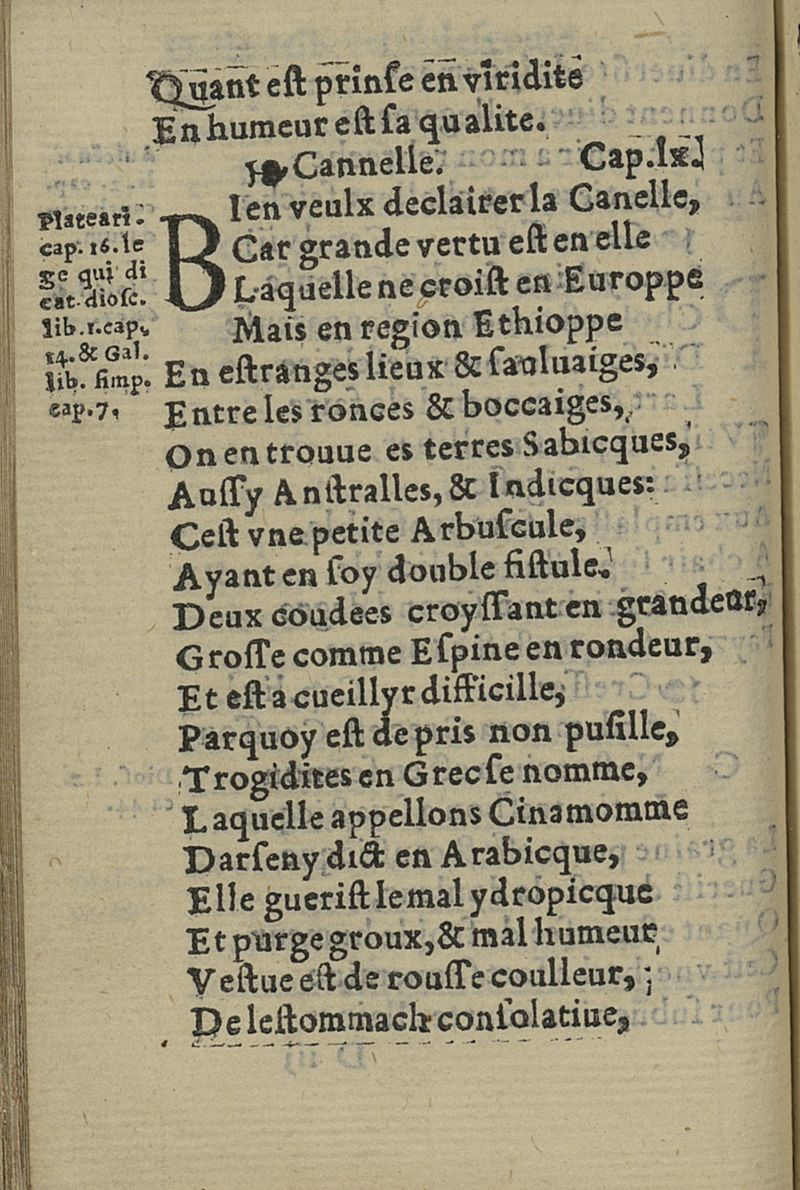 Quant est prinse en viridite
En humeur est sa qualite.
Cannelle. Cap.lx.
BIen veulx declairer la Canelle,
Car grande vertu est en elle
Laquelle ne croist en Europpe
Mais en region Ethioppe
En estranges lieux & sauluaiges,
Entre les ronces & boccaiges,
On en trouue es terres Sabicques,
Aussy Anstralles, & Indicques:
Cest vne petite Arbuscule,
Ayant en soy double fistule.
Deux coudees croyssant en grandeur,
Grosse comme Espine en rondeur,
Et est a cueillyr difficille,
Parquoy est de pris non pusille,
Trogidites en Grec se nomme,
Laquelle appellons Cinamomme
Darseny dict en Arabicque,
Elle guerist le mal ydropicque
Et purge groux, & mal humeur
Vestue est de rousse coulleur, ;
De lestommach consolatiue,
Plateari.
cap. 16. le
ge qui di
cat. diosc.
lib.1.cap.
14. & Gal.
lib. simp.
cap.7,